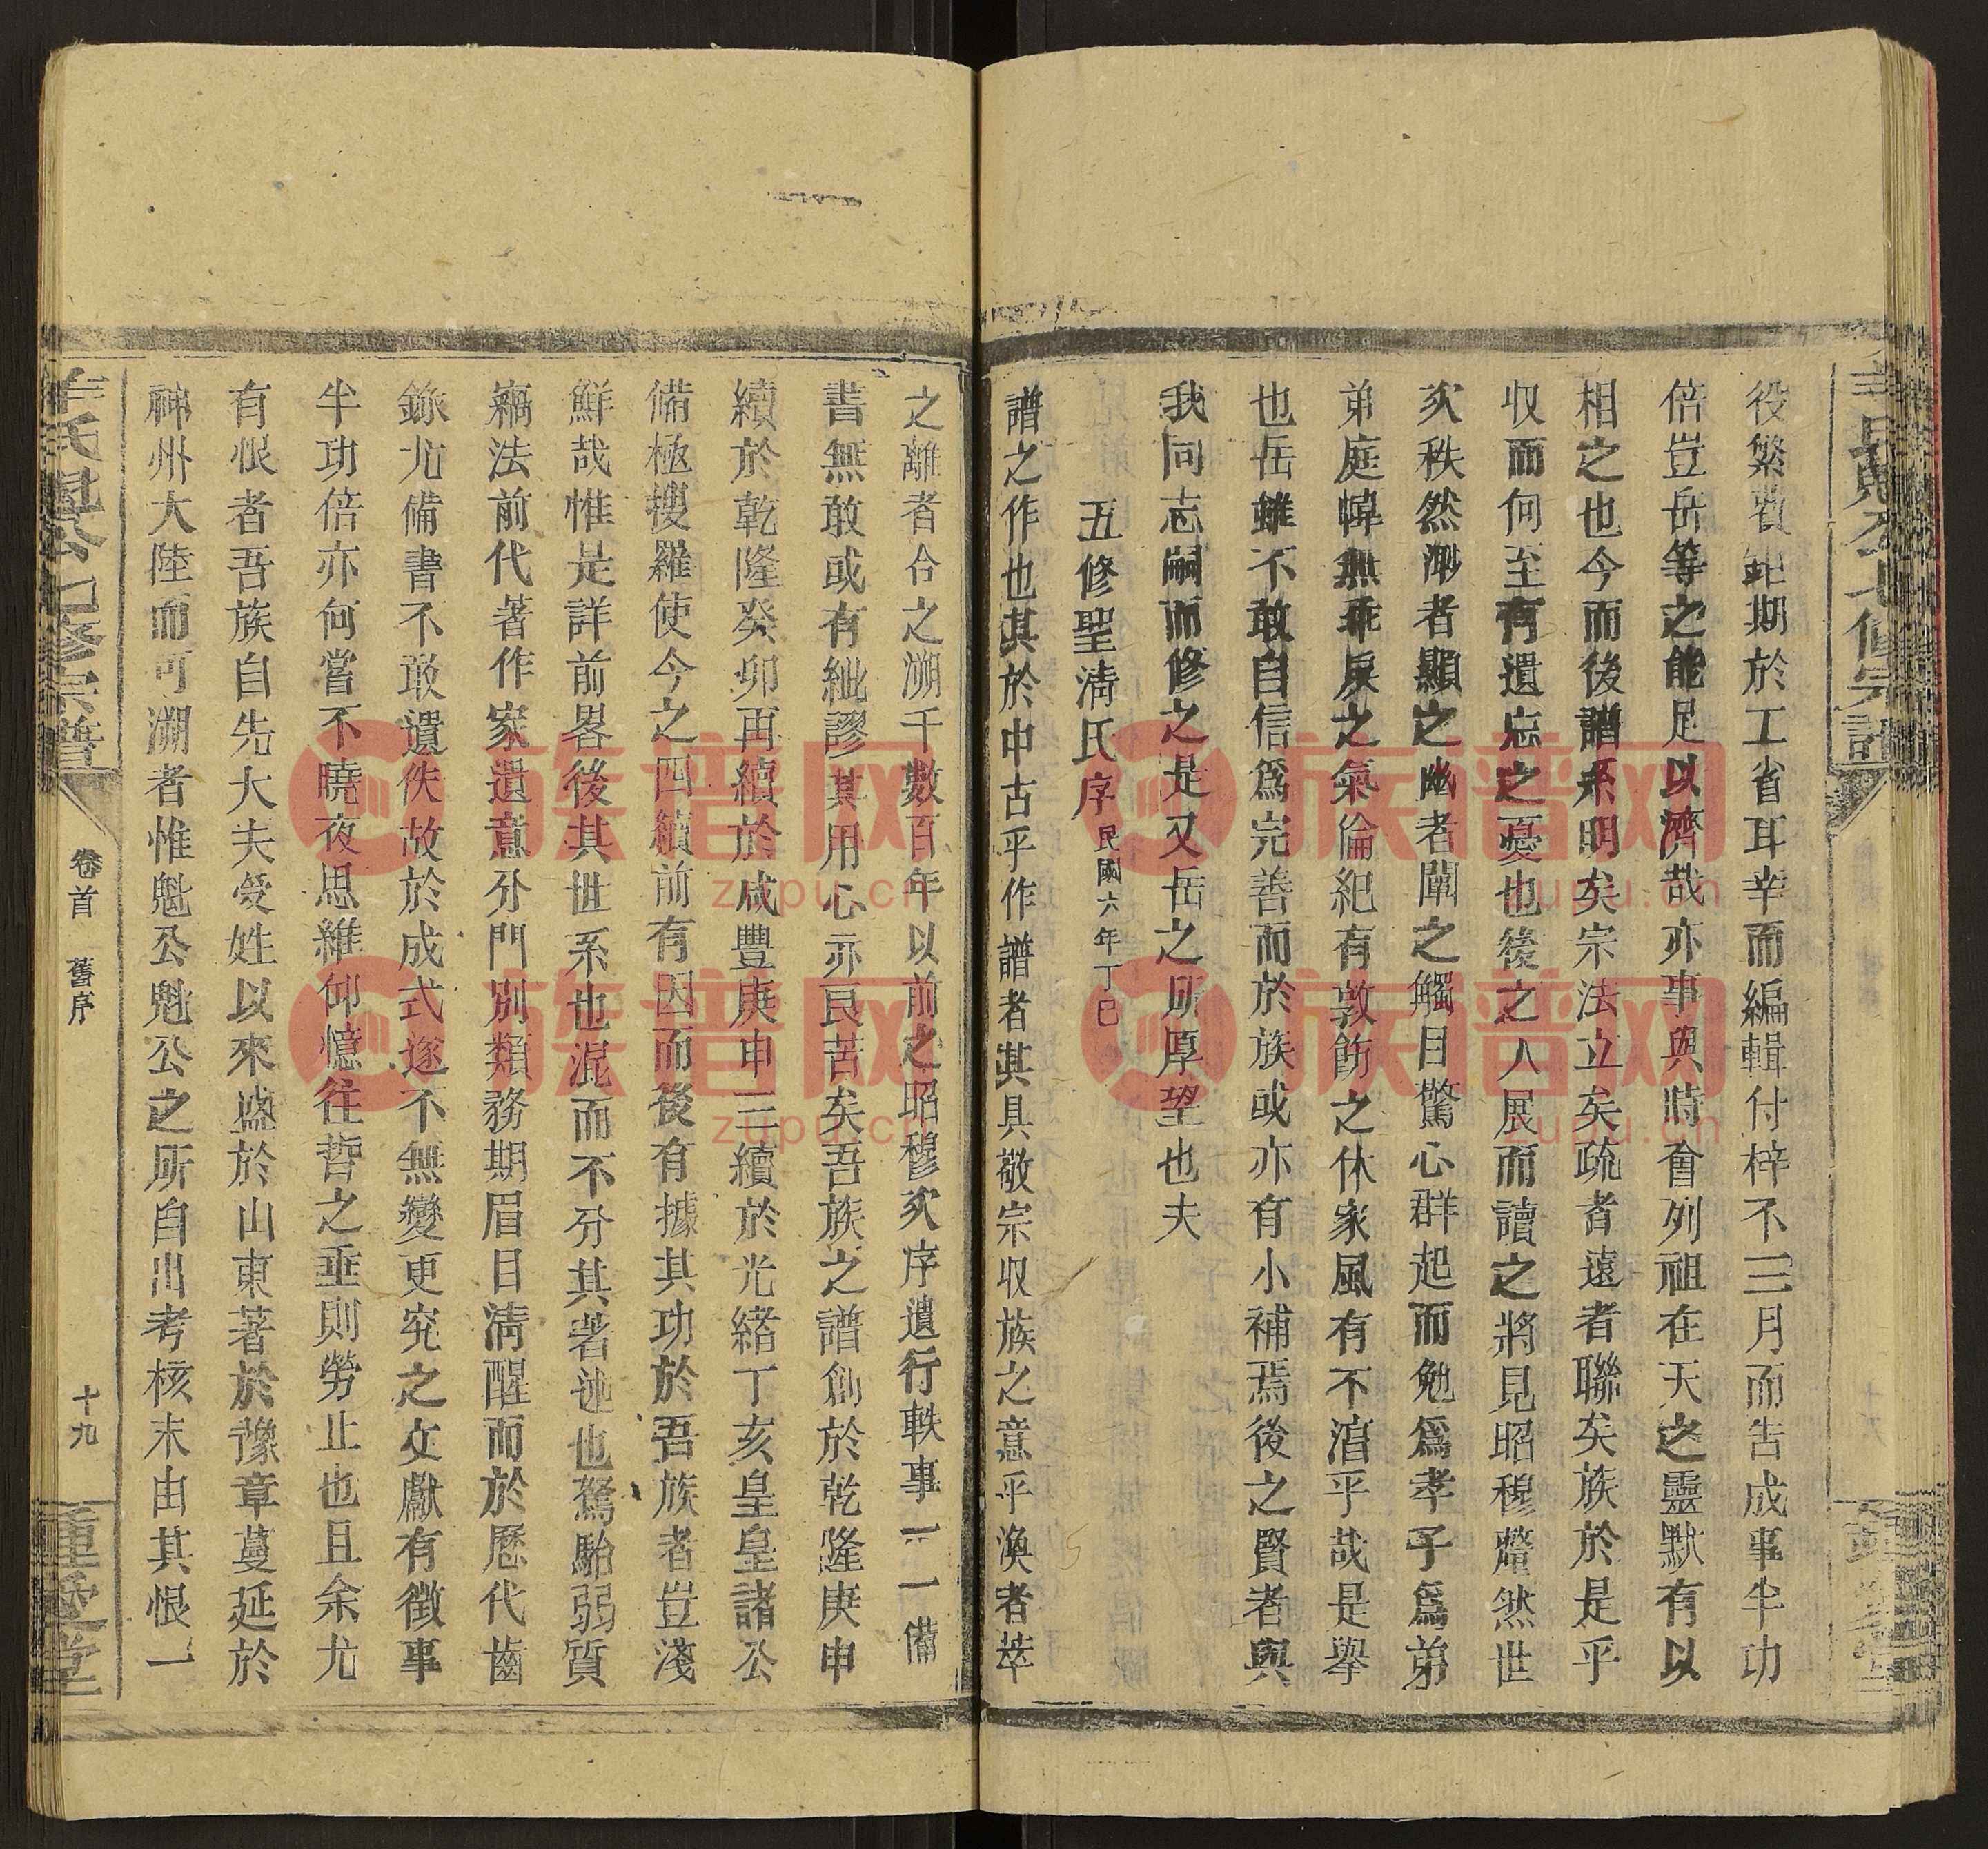 役繁數鉅期於工省耳幸而編輯付梓不三月而告成事半功
倍豈岳等之能足以濟哉亦事與時會列祖在天之靈默有以
相之也今而後譜系明矣宗法立矣疏者遠者聯矣族於是乎
収而何至有遺忘之憂也後之人展而讀之將見昭穆釐然世
次秩然渺者顯之幽者闡之觸目驚心群起而勉爲孝子爲弟
弟庭幃無乖戾之氣倫紀有敦飭之休家風有不淯乎哉是舉
也岳雖不敢自信爲完善而於族或亦有小補焉後之賢者與
我同志嗣而修之是又岳之所厚望也夫
五修聖淸氏序 民國六年丁巳
譜之作也其於中古乎作譜者其具敬宗収族之意乎渙者萃
之離者合之溯千數百年以前之昭穆次序遺行軼事一一備
書無敢或有紕謬其用心亦良苦矣吾族之譜創於乾隆庚申
續於乾隆癸卯再續於咸豐庚申三續於光緒丁亥皇皇諸公
備極搜羅使今之四續前有因而後有據其功於吾族者豈淺
鮮哉惟是詳前畧後其世系也混而不分其著述也駑駘弱質
竊法前代著作家遺意分門別類務期眉目淸醒而於歷代齒
錄尤備書不敢遺佚故於成式遂不無變更究之文獻有徵事
半功倍亦何嘗不曉夜思維仰憶往哲之垂則勞止也且余尤
有恨者吾族自先大夫受姓以來盛於山東著於豫章蔓延於
神州大陸而可溯者惟魁公魁公之所自出考核末由其恨一
辛氏魁公七修宗譜
卷首 舊序
十九
重愛堂
族譜网
zupu.cn
族譜网
zupu.cn
族譜网
zupu.cn
族譜网
zupu.cn